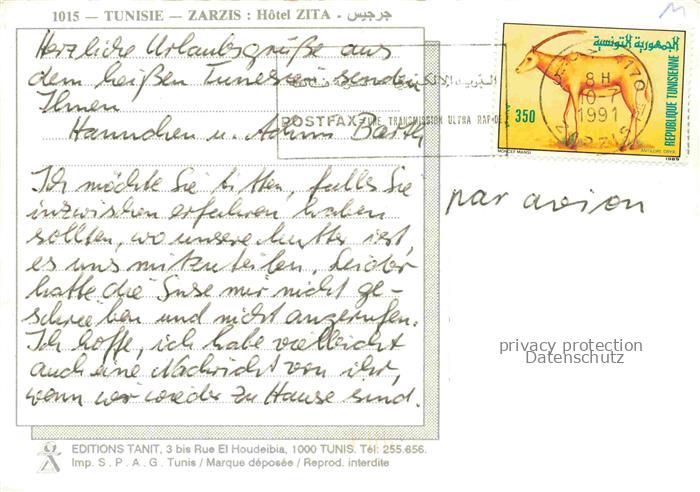 1015 — TUNISIE — ZARZIS : Hôtel ZITA - جرجيس
Herzliche Urlaubsgrüße aus
dem heißen Tunesien senden
Ihnen
Hannchen u. Achim Barth
Ich möchte Sie bitten, falls Sie
inzwischen erfahren haben
sollten, wo unsere Mutter ist,
es uns mitzuteilen. Leider
hatte die Suse mir nicht ge-
schrieben und nicht angerufen.
Ich hoffe, ich habe vielleicht
auch eine Nachricht von ihr,
wenn wir wieder zu Hause sind.
POSTFAX: UNE TRANSMISSION ULTRA RAPIDE
الجمهورية التونسية
REPUBLIQUE TUNISIENNE
350
8 H
10-7
1991
ANTILOPE ORYX
1989
par avion
privacy protection
Datenschutz
EDITIONS TANIT, 3 bis Rue El Houdeibia, 1000 TUNIS. Tél: 255.656.
Imp. S . P . A . G . Tunis / Marque déposée / Reprod. interdite